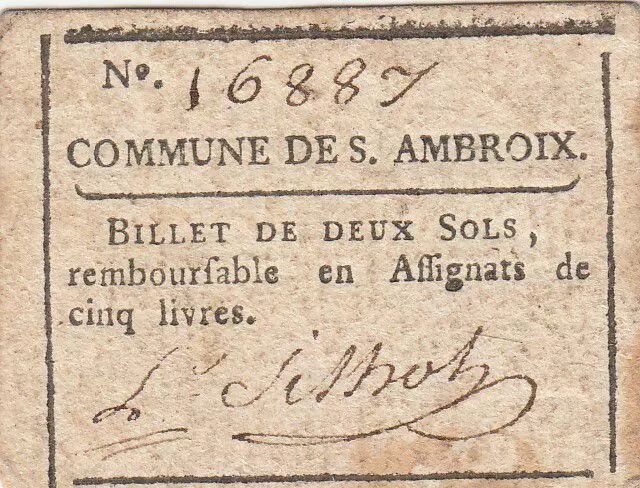 Nº. 16887
COMMUNE DE S. AMBROIX.
BILLET DE DEUX SOLS,
rembourſable en Aſſignats de
cinq livres.